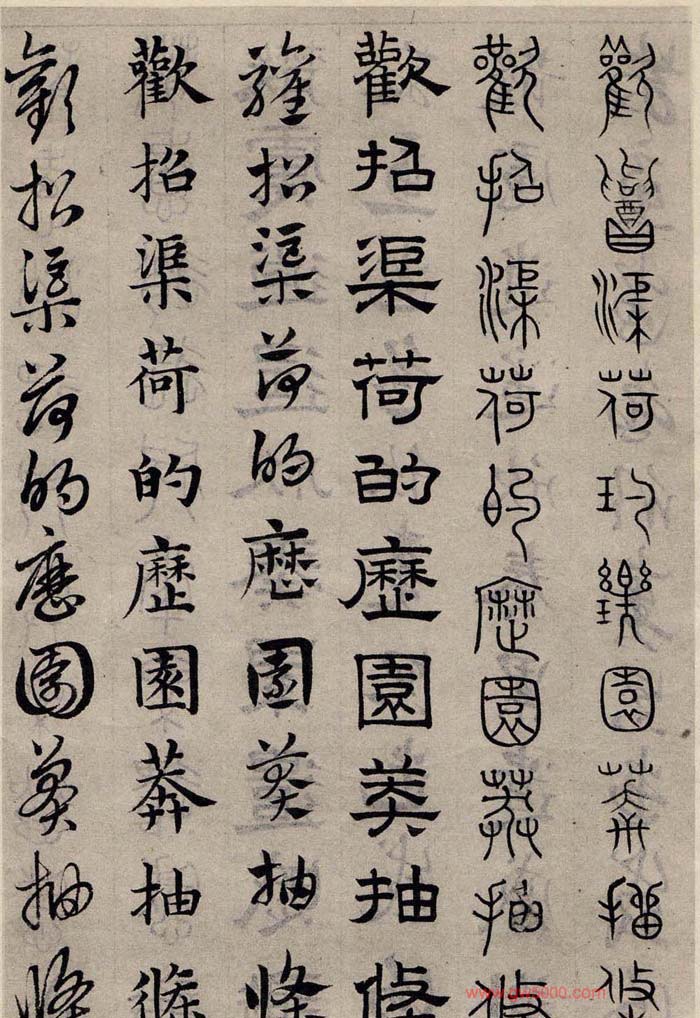 歡招渠荷玓瓅園莽抽條
歡招渠荷的歷園莽抽條
歡招渠荷的歷園莽抽條
歡招渠荷的歷園莽抽條
歡招渠荷的歷園莽抽條
歡招渠荷的歷園莽抽條